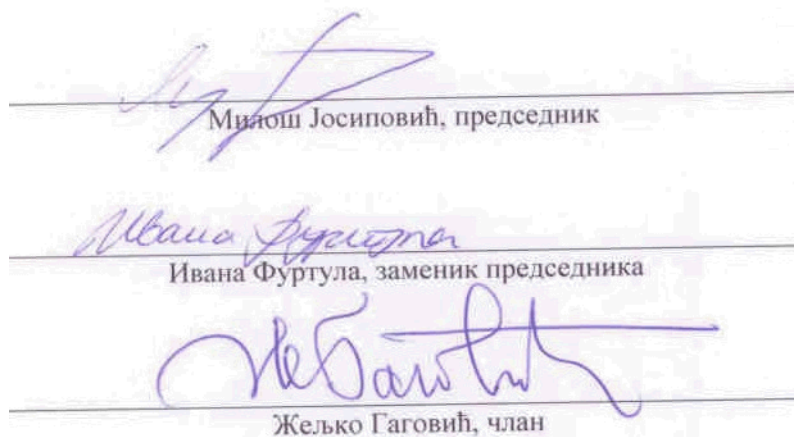 Милош Јосиповић, председник
Ивана Фуртула
Ивана Фуртула, заменик председника
Жељко Гаговић, члан